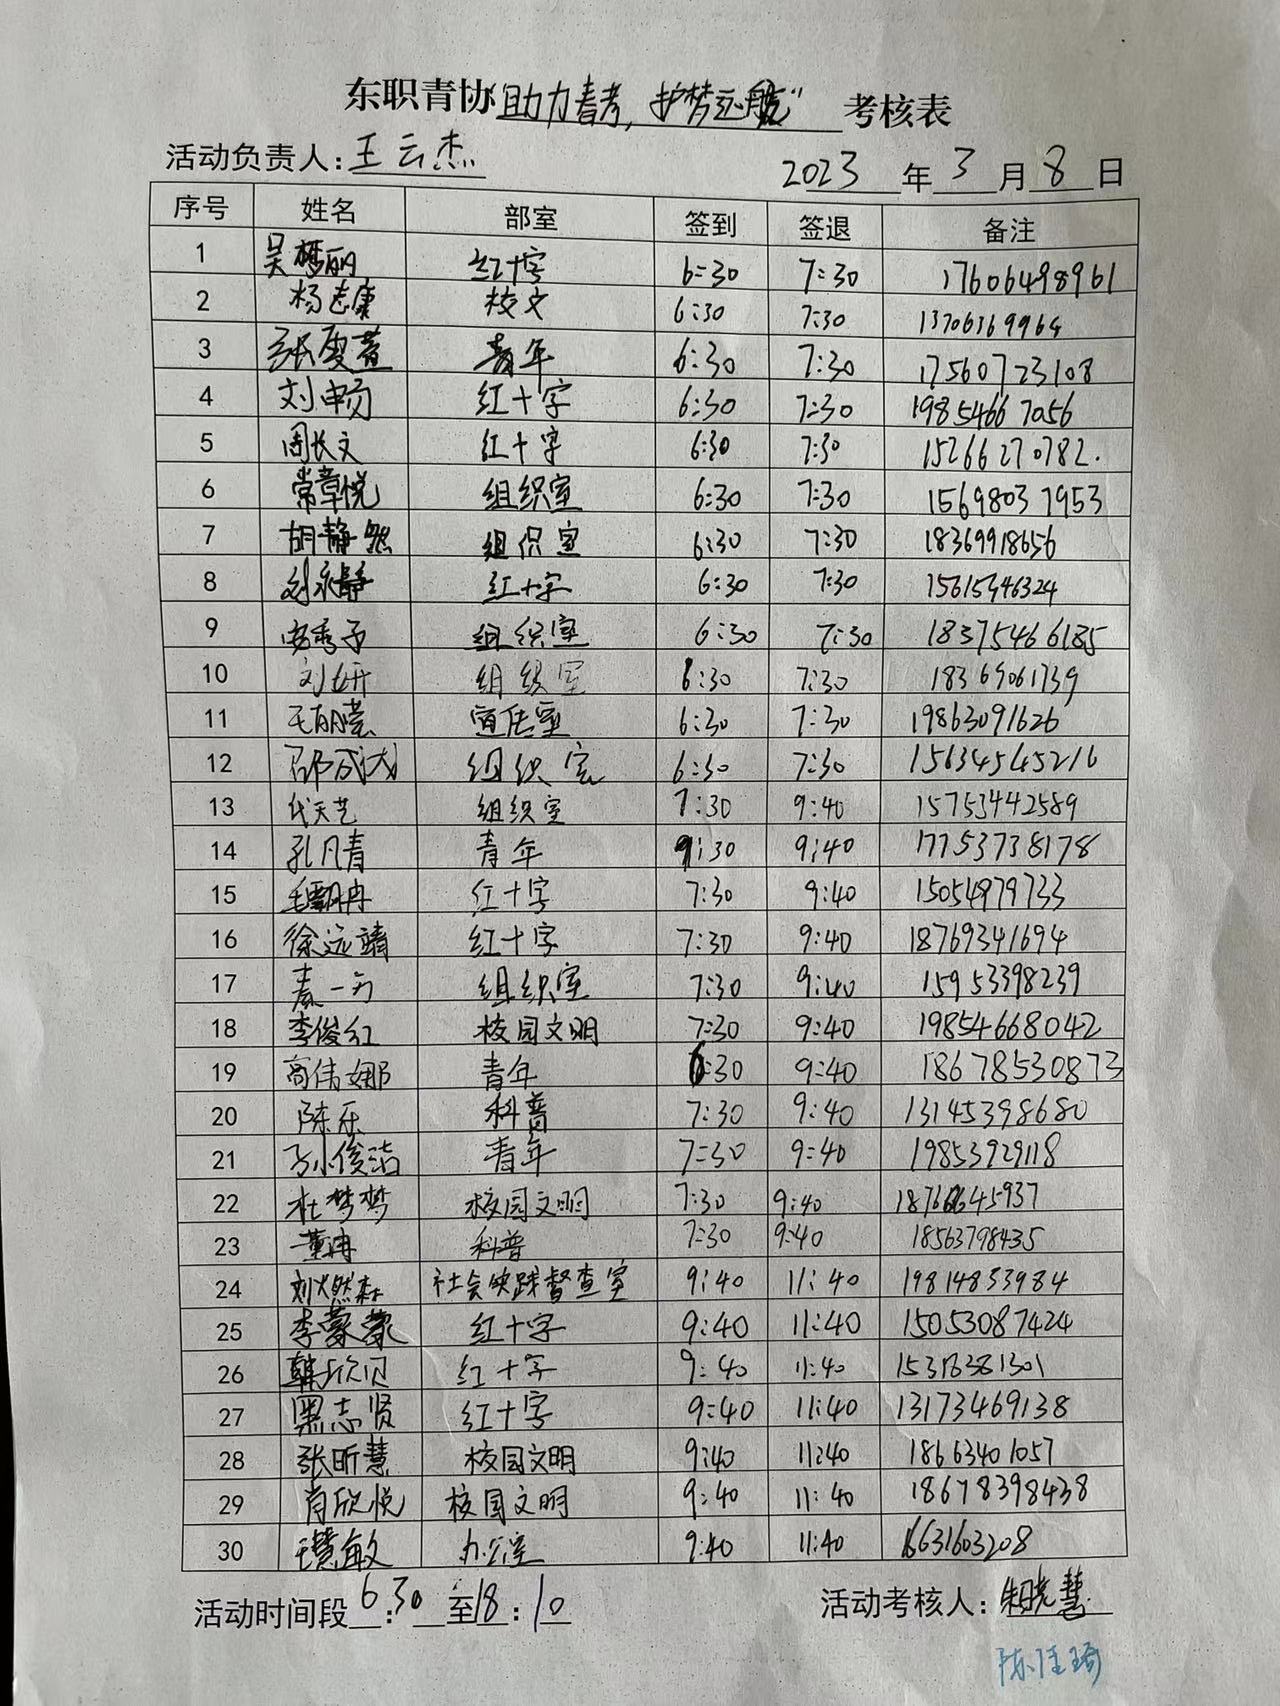 东职青协"助力春考,护梦远航"考核表
活动负责人:王云杰 2023年3月8日
序号 姓名 部室 签到 签退 备注
1 吴梦丽 红十字 6:30 7:30 17606498961
2 杨志康 校文 6:30 7:30 13706369964
3 张雯萱 青年 6:30 7:30 17560723108
4 刘畅 红十字 6:30 7:30 19854667056
5 周长文 红十字 6:30 7:30 15266270782.
6 常章悦 组织室 6:30 7:30 15698037953
7 胡静然 组织室 6:30 7:30 18369918656
8 刘永静 红十字 6:30 7:30 15615946324
9 组织室 6:30 7:30 18375466185
10 刘妍 组织室 6:30 7:30 18369061739
11 宣传室 6:30 7:30 19863091626
12 邵成成 组织室 6:30 7:30 15634545216
13 代天艺 组织室 7:30 9:40 15753442589
14 孔凡青 青年 9:30 9:40 17753738178
15 红十字 7:30 9:40 15054979733
16 徐远靖 红十字 7:30 9:40 18769341694
17 袁一方 组织室 7:30 9:40 15953398239
18 李俊红 校园文明 7:30 9:40 19854668042
19 高伟娜 青年 6:30 9:40 18678530873
20 陈乐 科普 7:30 9:40 13145398680
21 孙俊洁 青年 7:30 9:40 19853929118
22 杜梦梦 校园文明 7:30 9:40 18766645937
23 董冉 科普 7:30 9:40 18563798435
24 刘燃森 社会实践督查室 9:40 11:40 19814853984
25 李蒙蒙 红十字 9:40 11:40 15053087424
26 韩欣贝 红十字 9:40 11:40 15318381301
27 黑志贤 红十字 9:40 11:40 13173469138
28 张昕慧 校园文明 9:40 11:40 18663401057
29 肖欣悦 校园文明 9:40 11:40 18678398438
30 王慧敏 办公室 9:40 11:40 16631603208
活动时间段6:30至18:10 活动考核人:朱晓慧
陈佳琦